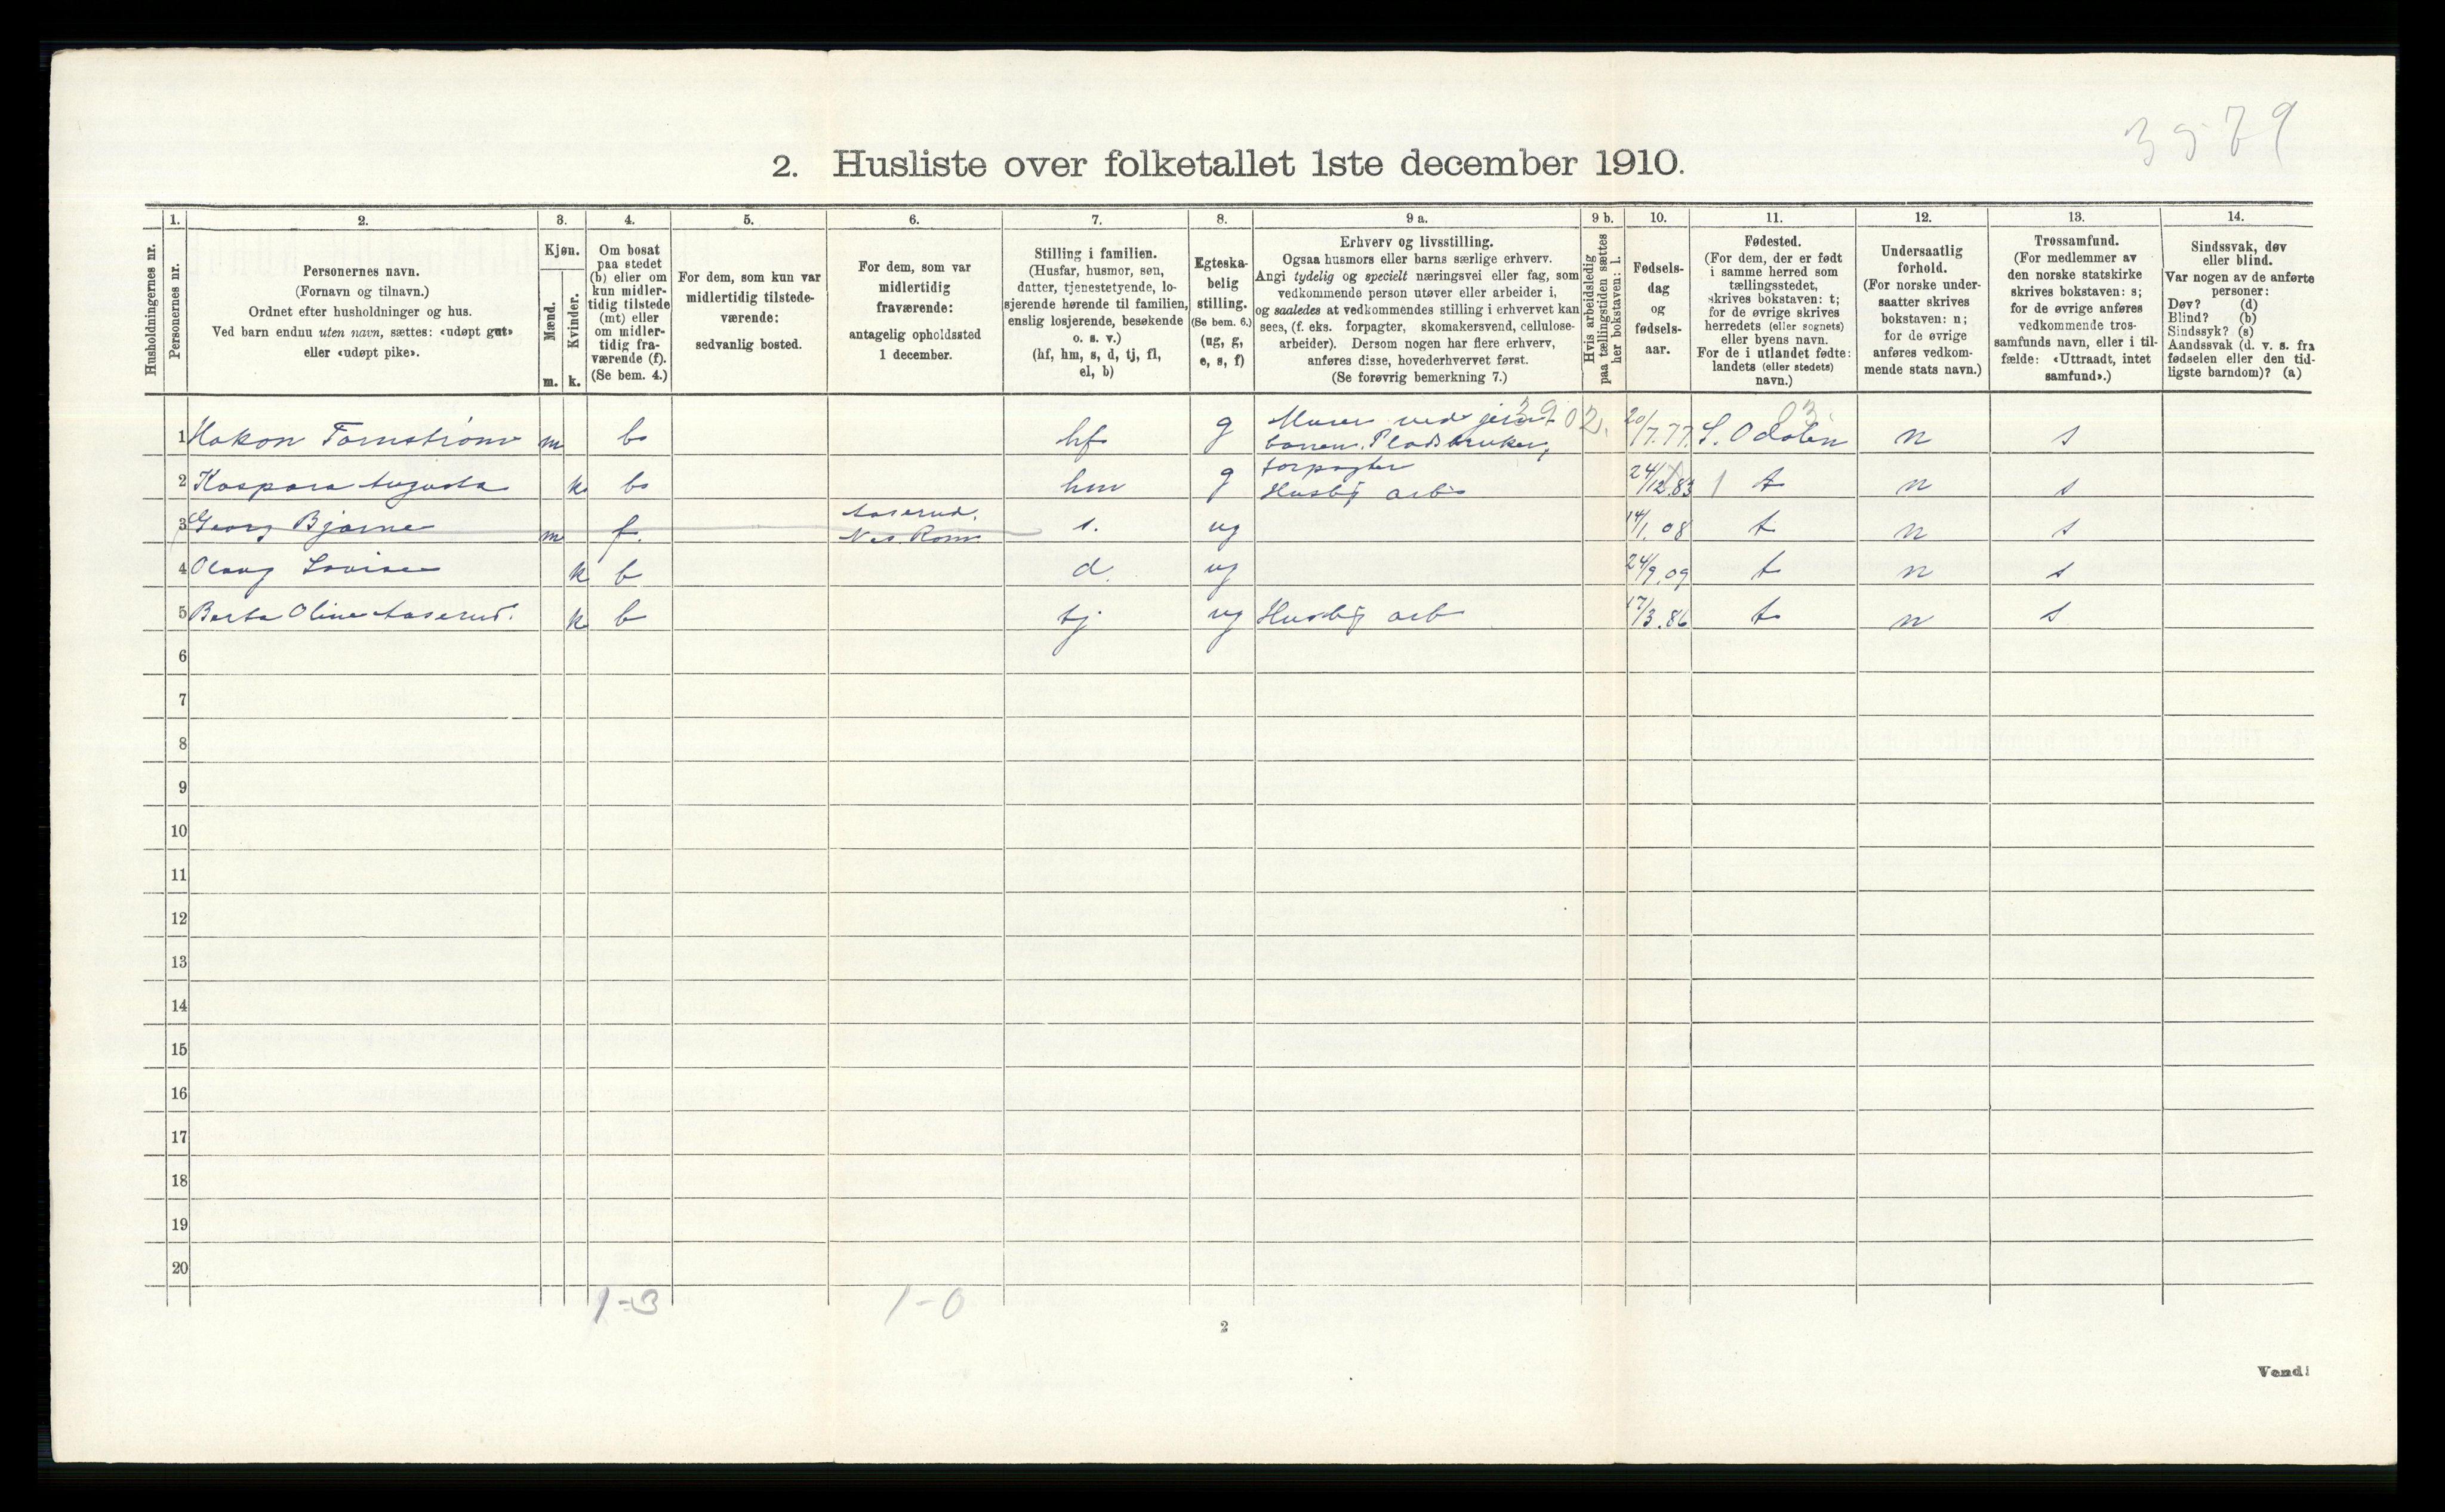 3579
2. Husliste over folketallet 1ste december 1910.
Husholdningernes nr.
1.
Personernes nr.
2.
Personernes navn.
(Fornavn og tilnavn.)
Ordnet efter husholdninger og hus.
Ved barn endnu uten navn, sættes: «udøpt gut»
eller «udøpt pike».
3.
Kjøn.
Mænd.
Kvinder.
m. k.
4.
Om bosat
paa stedet
(b) eller om
kun midler-
tidig tilstede
(mt) eller
om midler-
tidig fra-
værende (f).
(Se bem. 4.)
5.
For dem, som kun var
midlertidig tilstede-
værende:
sedvanlig bosted.
6.
For dem, som var
midlertidig
fraværende:
antagelig opholdssted
1 december.
7.
Stilling i familien.
(Husfar, husmor, søn,
datter, tjenestetyende, lo-
sjerende hørende til familien,
enslig losjerende, besøkende
o. s. v.)
(hf, hm, s, d, tj, fl,
el, b)
8.
Egteska-
belig
stilling.
(Se bem. 6.)
(ug, g,
e, s, f)
9 a.
Erhverv og livsstilling.
Ogsaa husmors eller barns særlige erhverv.
Angi tydelig og specielt næringsvei eller fag, som
vedkommende person utøver eller arbeider i,
og saaledes at vedkommendes stilling i erhvervet kan
sees, (f. eks. forpagter, skomakersvend, cellulose-
arbeider). Dersom nogen har flere erhverv,
anføres disse, hovederhvervet først.
(Se forøvrig bemerkning 7.)
9 b.
Hvis arbeidsledig
paa tællingstiden sættes
her bokstaven: l.
10.
Fødsels-
dag
og
fødsels-
aar.
11.
Fødested.
(For dem, der er født
i samme herred som
tællingsstedet,
skrives bokstaven: t;
for de øvrige skrives
herredets (eller sognets)
eller byens navn.
For de i utlandet fødte:
landets (eller stedets)
navn.)
12.
Undersaatlig
forhold.
(For norske under-
saatter skrives
bokstaven: n;
for de øvrige
anføres vedkom-
mende stats navn.)
13.
Trossamfund.
(For medlemmer av
den norske statskirke
skrives bokstaven: s;
for de øvrige anføres
vedkommende tros-
samfunds navn, eller i til-
fælde: «Uttraadt, intet
samfund».)
14.
Sindssvak, døv
eller blind.
Var nogen av de anførte
personer:
Døv? (d)
Blind? (b)
Sindssyk? (s)
Aandssvak (d. v. s. fra
fødselen eller den tid-
ligste barndom)? (a)
1 Hakon Tørnstrøm m b hf g Murer ved jern- 3902. 20/7.77. S. Odalen 03 n s
banen. Pladsbruker,
forpagter
2 Kaspara Augusta k b hm g Husly arb 24/12.83 1 t n s
3 Georg Bjarne m f. Aaserud. s. ug 14/1.08 t n s
Nes Rom.
4 Olaug Lovise k b d. ug 24/9.09 t n s
5 Berta Oline Aaserud. k b tj ug Husly arb 17/3.86 t n s
6
7
8
9
10
11
12
13
14
15
16
17
18
19
20
1-3 1-0
2
Vend!